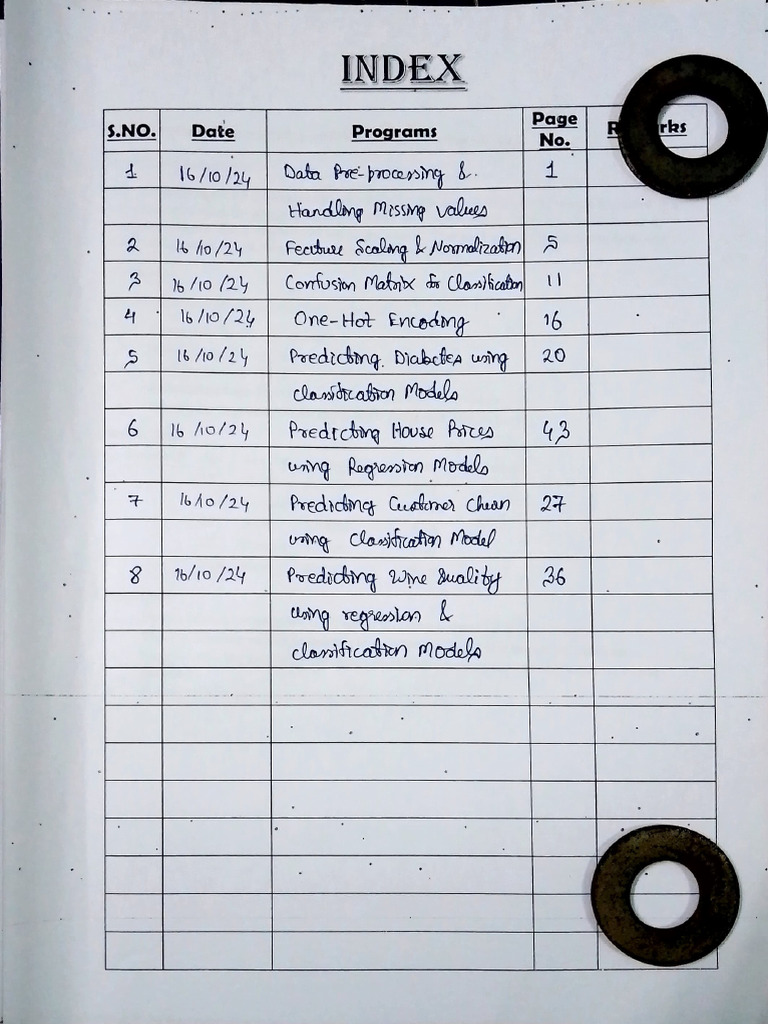 INDEX
S.NO. Date Programs Page No. R rks
1. 16/10/24 Data Pre-processing & 1
Handling Missing values
2 16/10/24 Feature Scaling & Normalization 5
3 16/10/24 Confusion Matrix for Classification 11
4 16/10/24 One-Hot Encoding 16
5 16/10/24 Predicting Diabetes using 20
classification Models
6 16/10/24 Predicting House Prices 43
using Regression Models
7 16/10/24 Predicting Customer Churn 27
using Classification Model
8 16/10/24 Predicting Wine Quality 36
using regression &
classification Models